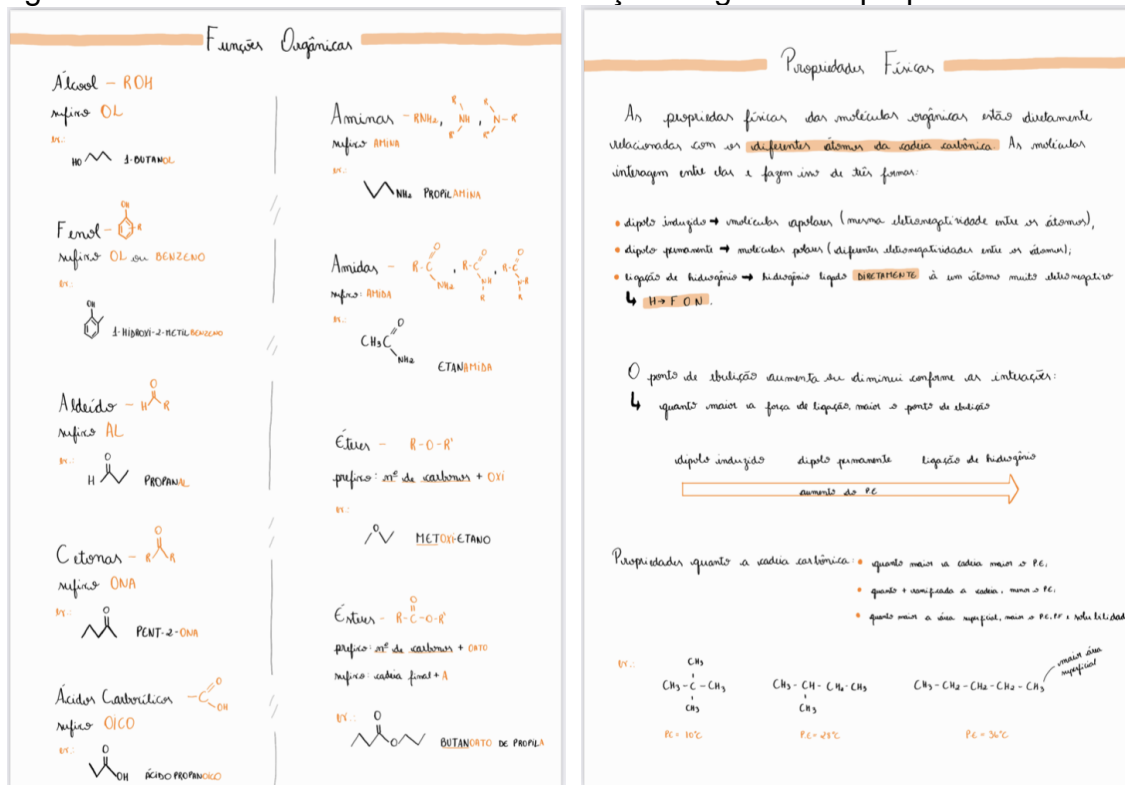 Funções Orgânicas
Álcool - ROH
sufixo OL
ex.:
HO 1-BUTANOL
Fenol - OH R
sufixo OL ou BENZENO
ex.:
OH
1-HIDROXI-2-METILBENZENO
Aldeído - O H R
sufixo AL
ex.:
O
H PROPANAL
Cetonas - O R R
sufixo ONA
ex.:
O
PENT-2-ONA
Ácidos Carboxílicos - C O OH
sufixo OICO
ex.:
O
OH ÁCIDO PROPANOICO
Aminas - RNH₂, R NH R', R N-R R'
sufixo AMINA
ex.:
NH₂ PROPILAMINA
Amidas - R-C O NH₂, R-C O NH R, R-C O N-R R
sufixo: AMIDA
ex.:
CH₃C O NH₂
ETANAMIDA
Éteres - R-O-R'
prefixo: nº de carbonos + OXI
ex.:
O
METOXI-ETANO
Ésteres - R-C-O-R' O
prefixo: nº de carbonos + OATO
sufixo: cadeia final + A
ex.:
O
O BUTANOATO DE PROPILA
Propriedades Físicas
As propriedas físicas das moléculas orgânicas estão diretamente
relacionadas com os diferentes átomos da cadeia carbônica. As moléculas
interagem entre elas e fazem isso de três formas:
• dipolo induzido → moléculas apolares (mesma eletronegatividade entre os átomos),
• dipolo permanente → moléculas polares (diferentes eletronegatividades entre os átomos);
• ligação de hidrogênio → hidrogênio ligado DIRETAMENTE à um átomo muito eletronegativo
↳ H→ F O N.
O ponto de ebulição aumenta ou diminui conforme as interações:
↳ quanto maior a força de ligação, maior o ponto de ebulição
dipolo induzido dipolo permanente ligação de hidrogênio
aumento do P.E
Propriedades quanto a cadeia carbônica: • quanto maior a cadeia maior o P.E,
• quanto + ramificada a cadeia, menor o P.E,
• quanto maior a área superficial, maior o P.E, P.F e solubilidad
ex.:
CH₃
CH₃-C-CH₃
CH₃
P.E = 10°C
CH₃-CH-CH₂-CH₃
CH₃
P.E = 28°C
CH₃-CH₂-CH₂-CH₂-CH₃
maior área
superficial
P.E = 36°C